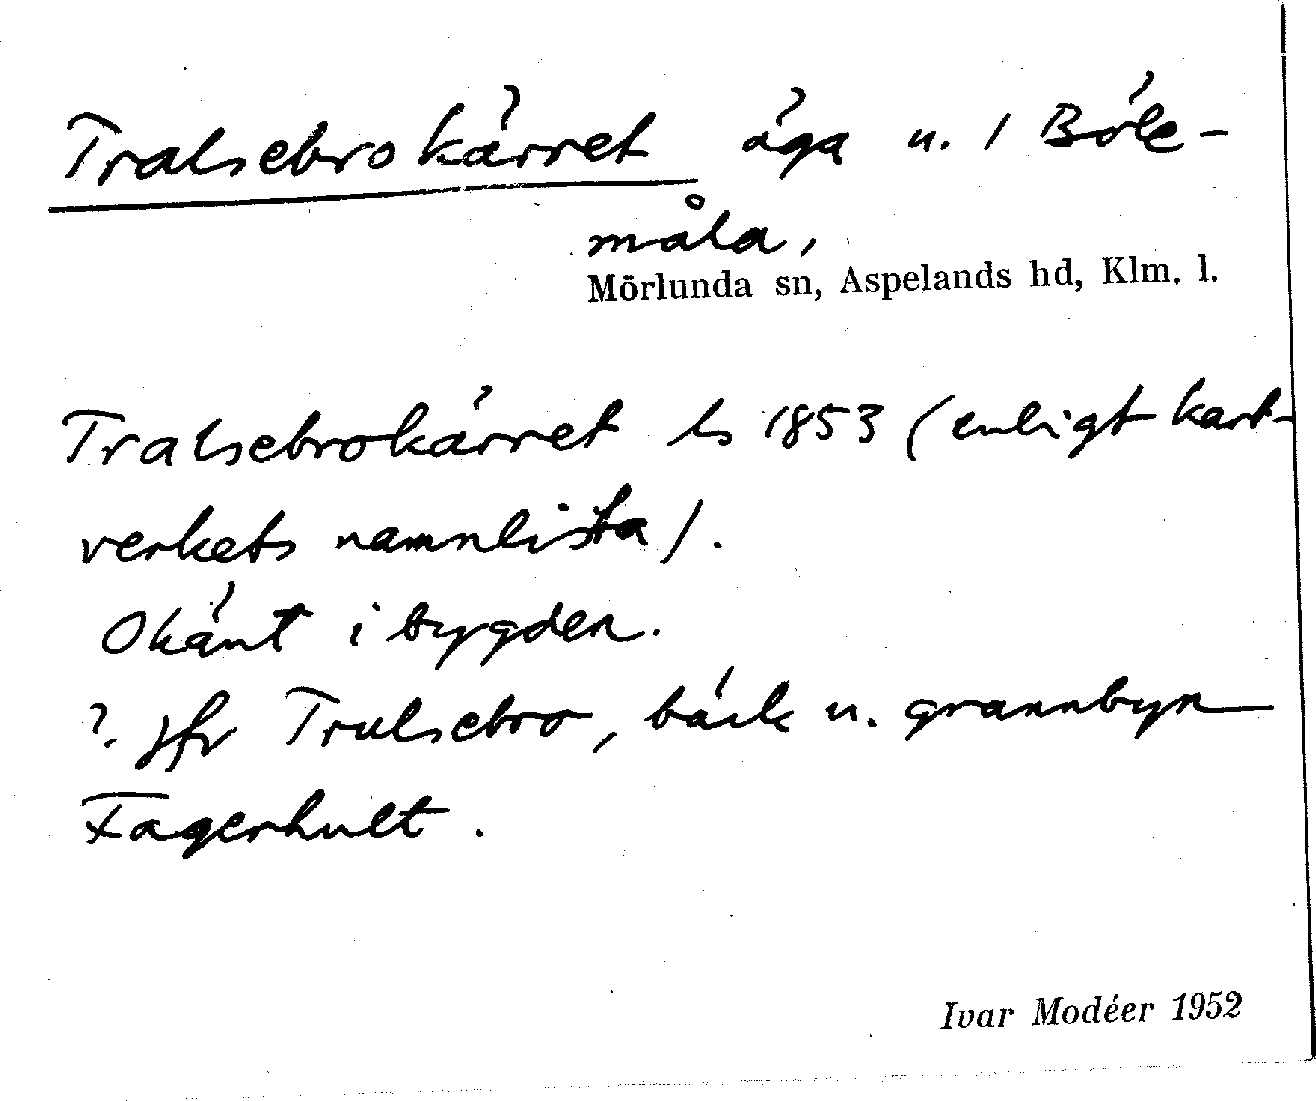 Tralsebrokärret äga u. / Böle-
måla,
Mörlunda sn, Aspelands hd, Klm. l.
Tralsebrokärret ls 1853 (enligt kart-
verkets namnlista).
Okänt i bygden.
?. Jfr Trulsebro, bäck u. grannbyn
Fagerhult.
Ivar Modéer 1952